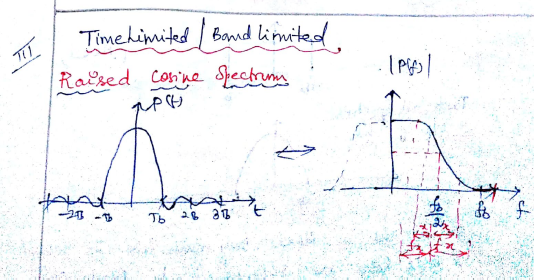 III
Time Limited / Band limited.
Raised Cosine Spectrum
P(t)
|P(f)|
-2Tb -Tb Tb 2Tb 3Tb t
fb/2 fb f
x x
fx fx